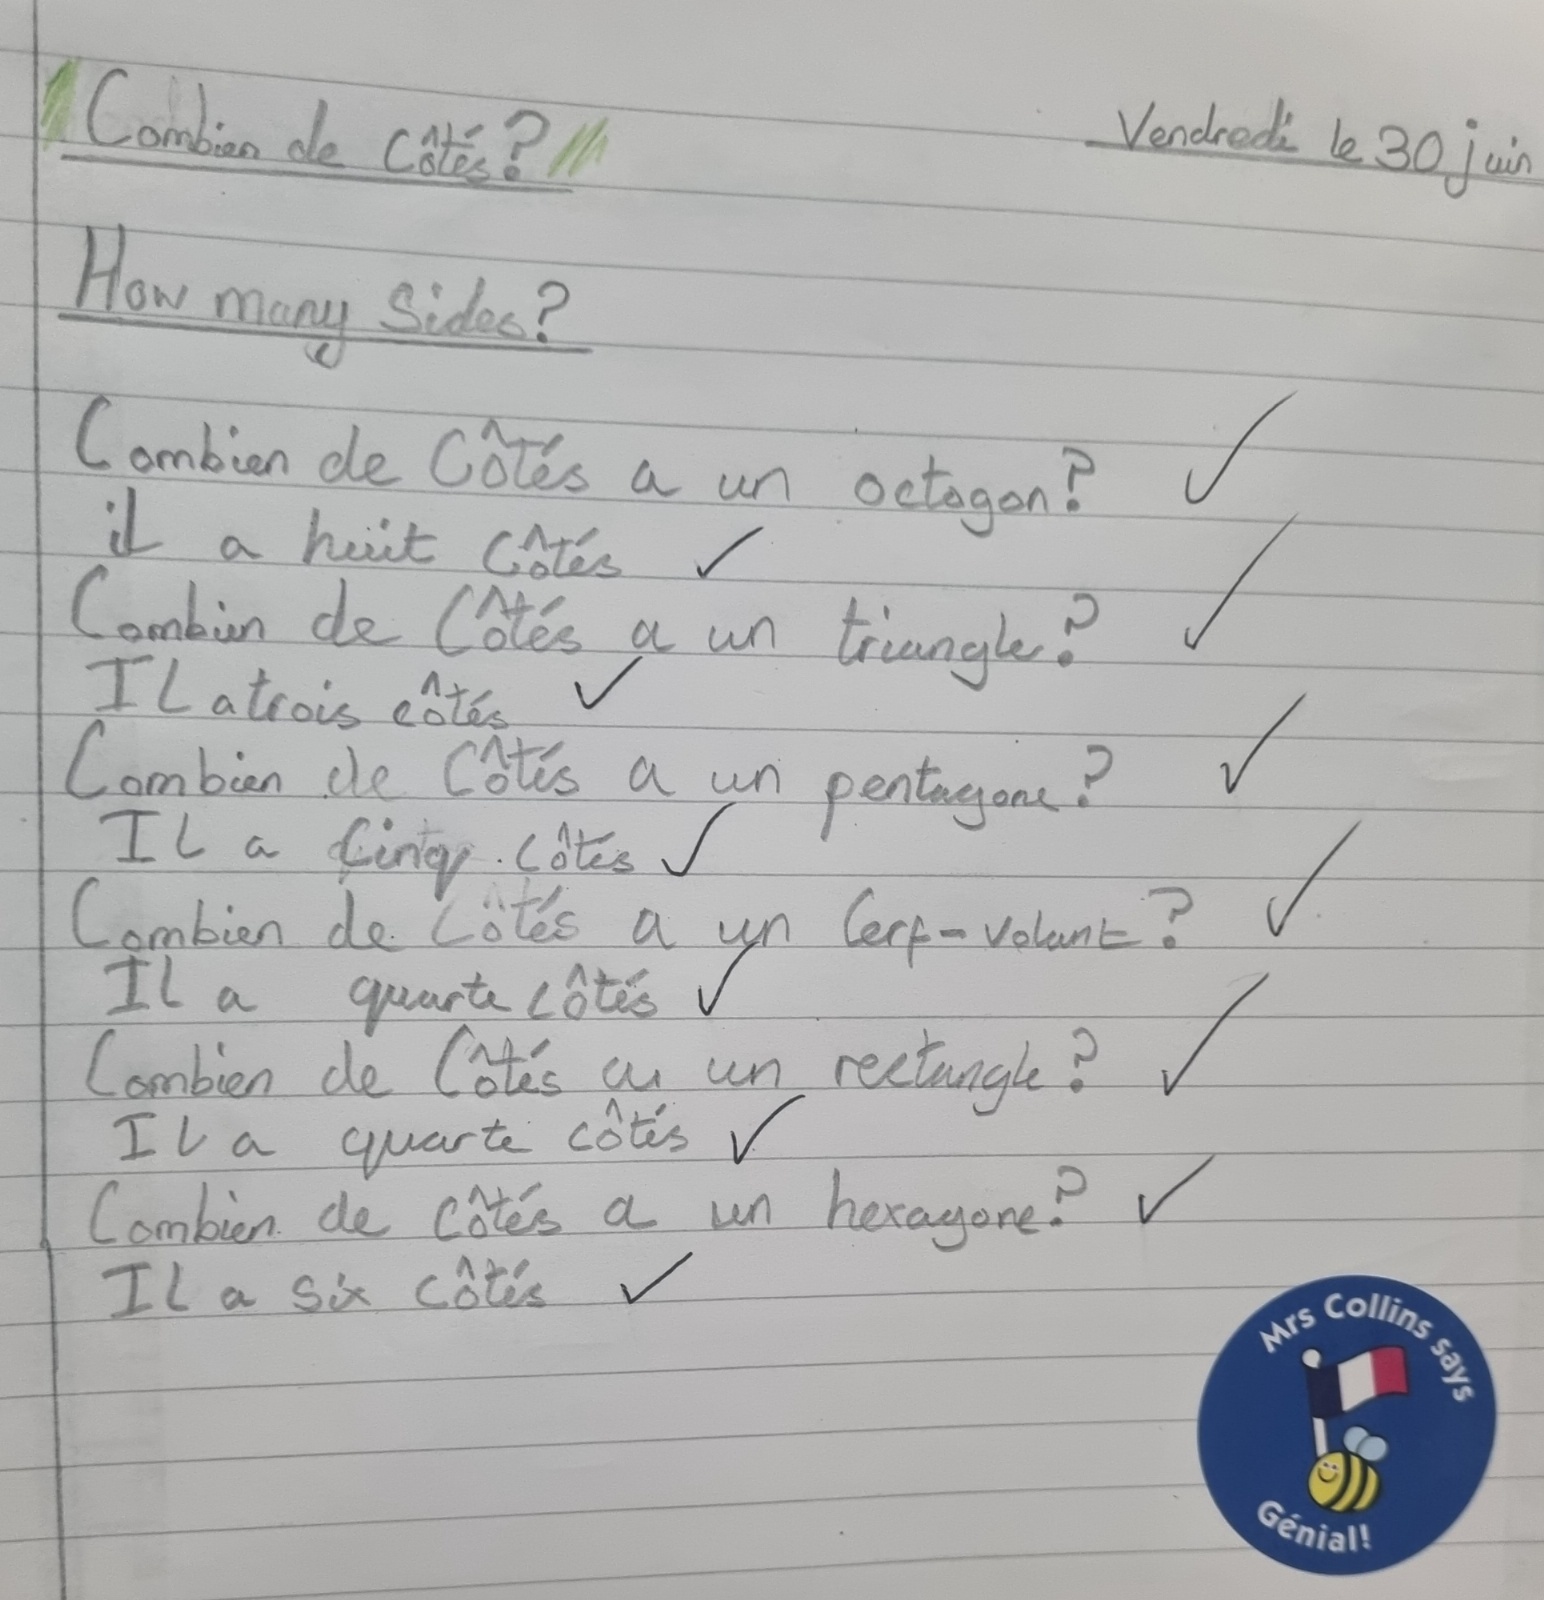 Combien de côtés?
Vendredi le 30 juin
How many Sides?
Combien de Côtés a un octogon?
il a huit côtés
Combien de Côtés a un triangle?
IL a trois côtés
Combien de Côtés a un pentagone?
IL a cinq côtés
Combien de Côtés a un Cerf-volant?
IL a quarte côtés
Combien de Côtés a un rectangle?
IL a quarte côtés
Combien de côtés a un hexagone?
IL a six côtés
Mrs Collins says
Génial!